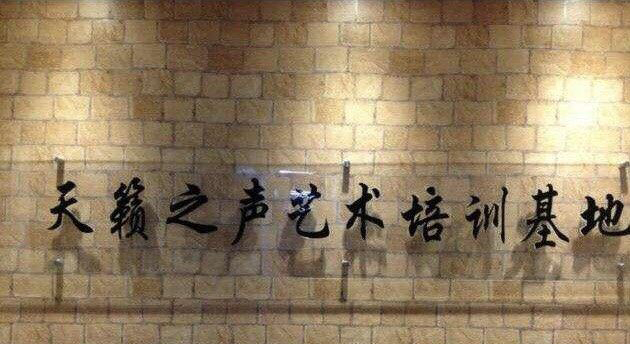 天籁之声艺术培训基地